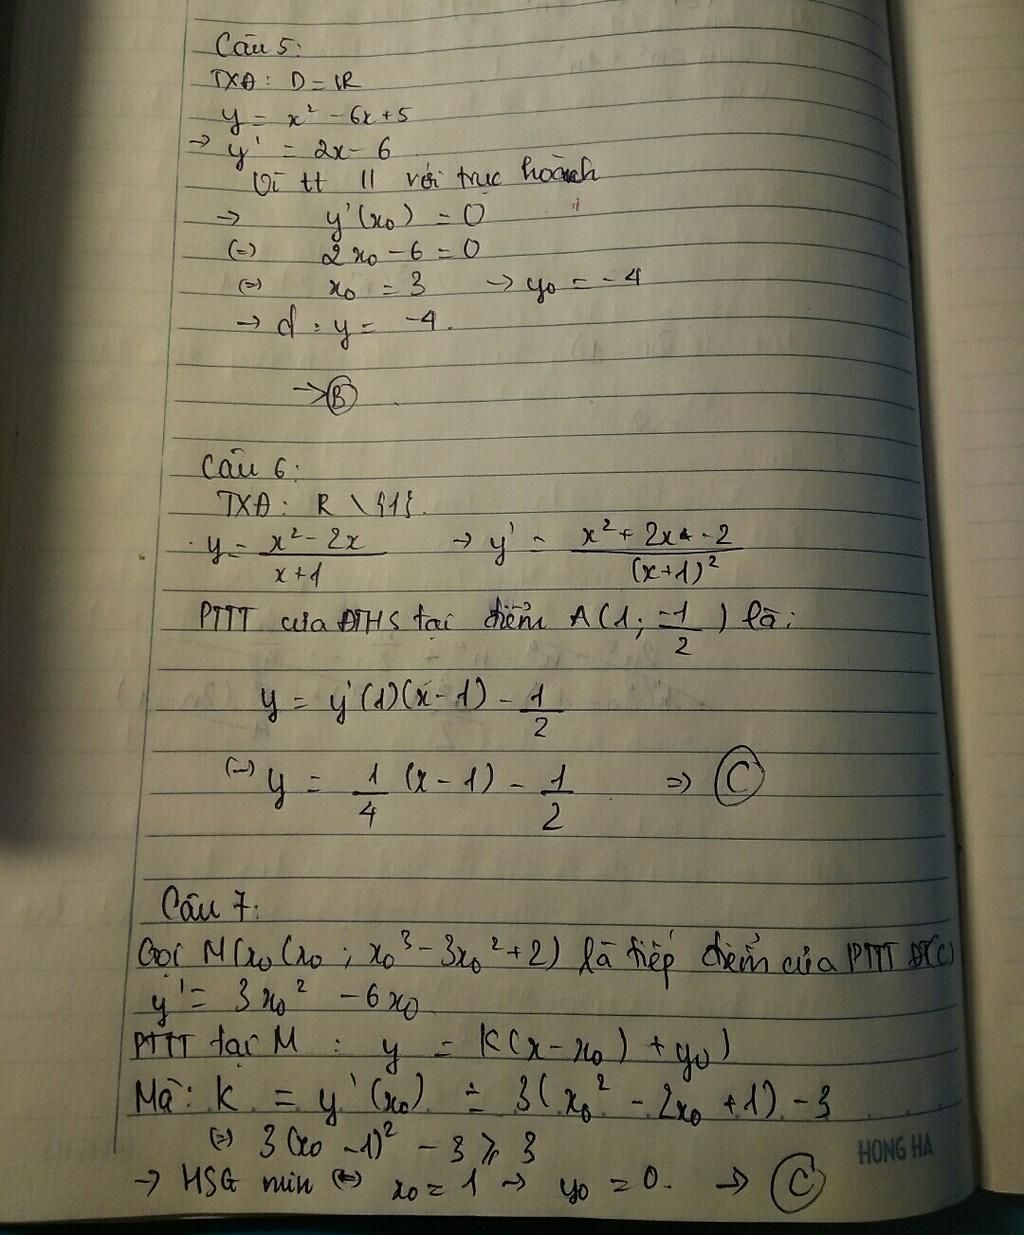 Câu 5:
TXĐ: D = R
y = x² - 6x + 5
→ y' = 2x - 6
Vì tt // với trục hoành
→ y'(x₀) = 0
(=) 2x₀ - 6 = 0
(=) x₀ = 3 → y₀ = -4
→ d : y = -4.
→ (B)
Câu 6:
TXĐ: R \ {1}.
y = (x² - 2x)/(x+1) → y' = (x² + 2x - 2)/(x+1)²
PTTT của ĐTHS tại điểm A(1; -1/2) là:
y = y'(1)(x-1) - 1/2
(=) y = 1/4 (x-1) - 1/2 => (C)
Câu 7:
Gọi M(x₀(x₀; x₀³ - 3x₀² + 2) là tiếp điểm của PTTT (C)
y' = 3x₀² - 6x₀
PTTT tại M : y = k(x-x₀) + y₀)
Mà: k = y'(x₀) = 3(x₀² - 2x₀ + 1) - 3
(=) 3(x₀ - 1)² - 3 ⩾ 3
→ HSG min (=) x₀ = 1 → y₀ = 0. → (C)
HONG HA